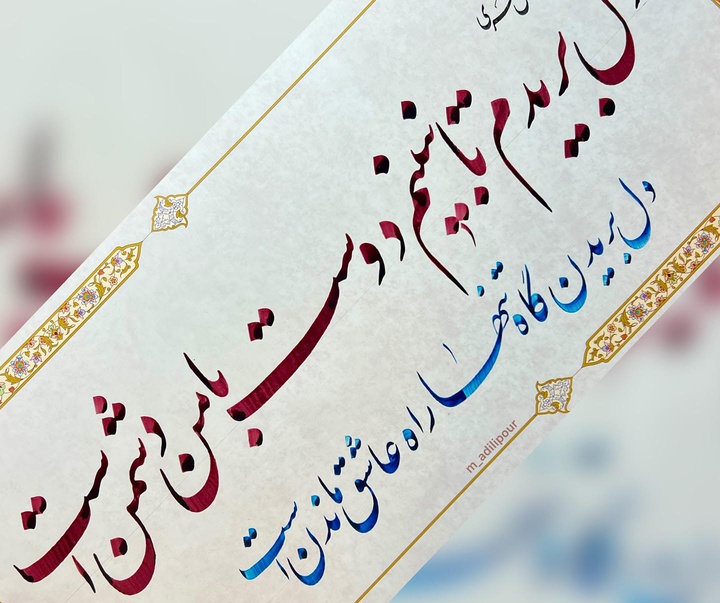 بریدم تا نبینم دوست با من دشمن است
دل بریدن گاه تنها راه عاشق ماندن است
m_adilipour